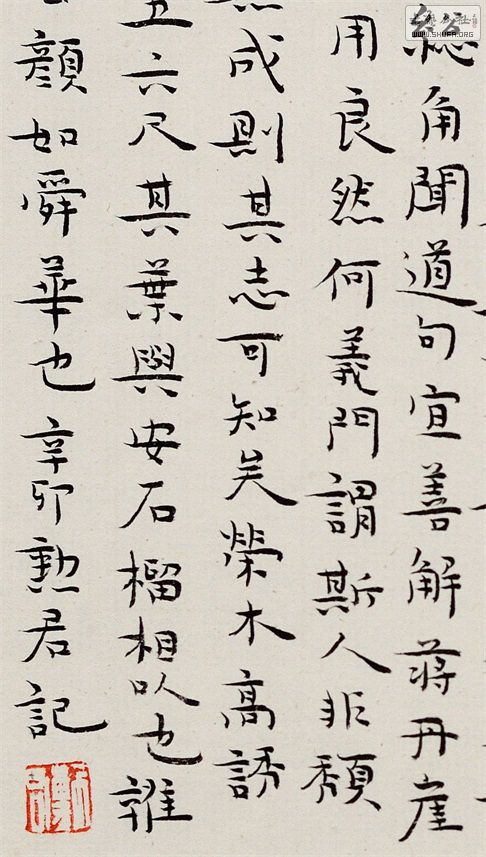 總角聞道句宜善解蔣丹崖
用良然何義門謂斯人非頹
成則其志可知矣榮木高誘
五六尺其葉與安石榴相似也雜
顏如舜華也辛卯勳君記
WWW.SHUFA.ORG